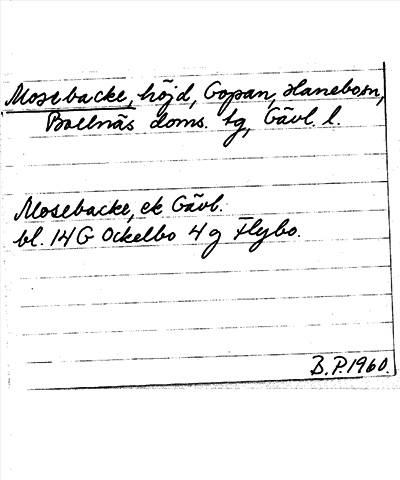 Mosebacke, höjd, Gopan, Hanebo sn,
Bollnäs doms. tg, Gävl. l.
Mosebacke, ek Gävl.
bl. 14G Ockelbo 4g Flybo.
B.P. 1960.